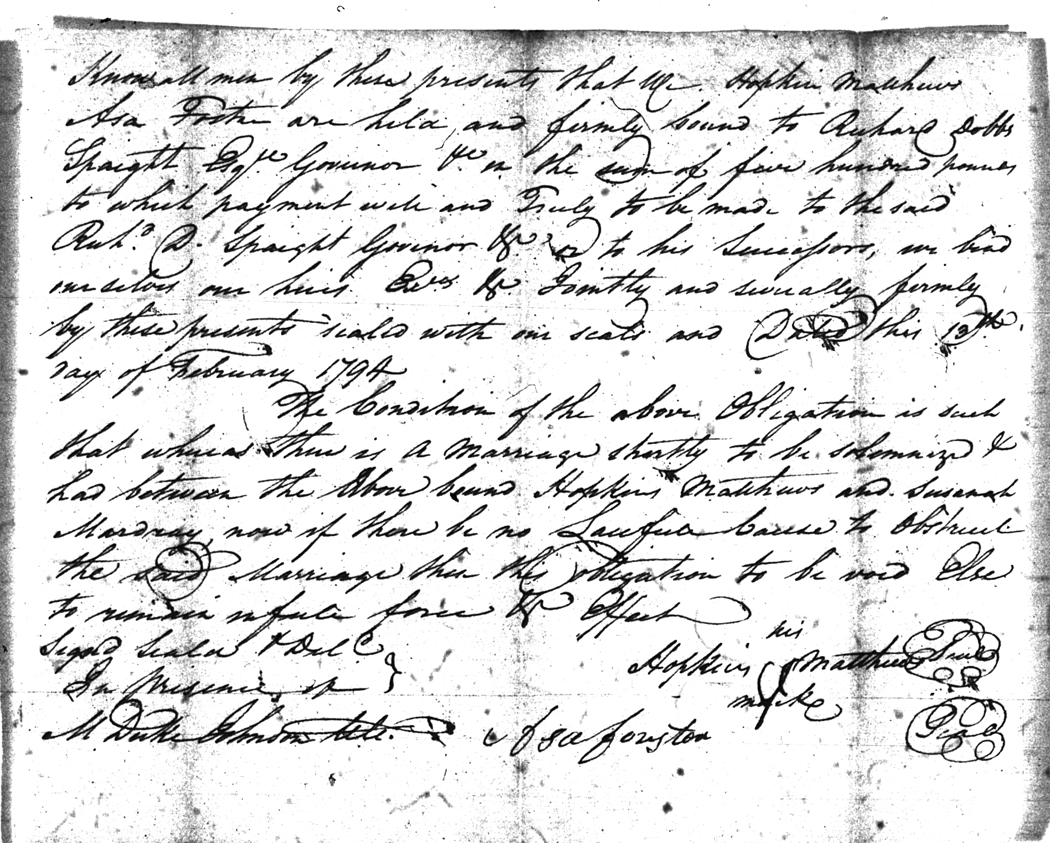 Know all men by these presents that We Hopkin Matthews
Asa Foster are held and firmly bound to Richard Dobbs
Spaight Esqre Govinor &c in the sum of five hundred pounds
to which payment will and Truly to be made to the said
Richd D. Spaight Govinor &c to his Successors, we bind
ourselves our heirs Exrs &c Jointly and severally firmly
by these presents sealed with our seals and Dated this 13th
day of February 1794
The Condition of the above Obligation is such
that whereas there is a Marriage shortly to be solemnized &
had between the Above bound Hopkins Matthews and Susanah
now if there be no Lawfull Cause to Obstruct
the said Marriage then this obligation to be void Else
to remain in full force & Effect
Signd Seald & Deld
In presence of
M Duke Johnson
his
Hopkins Matthews Seal
mark
Asa fouston Seal